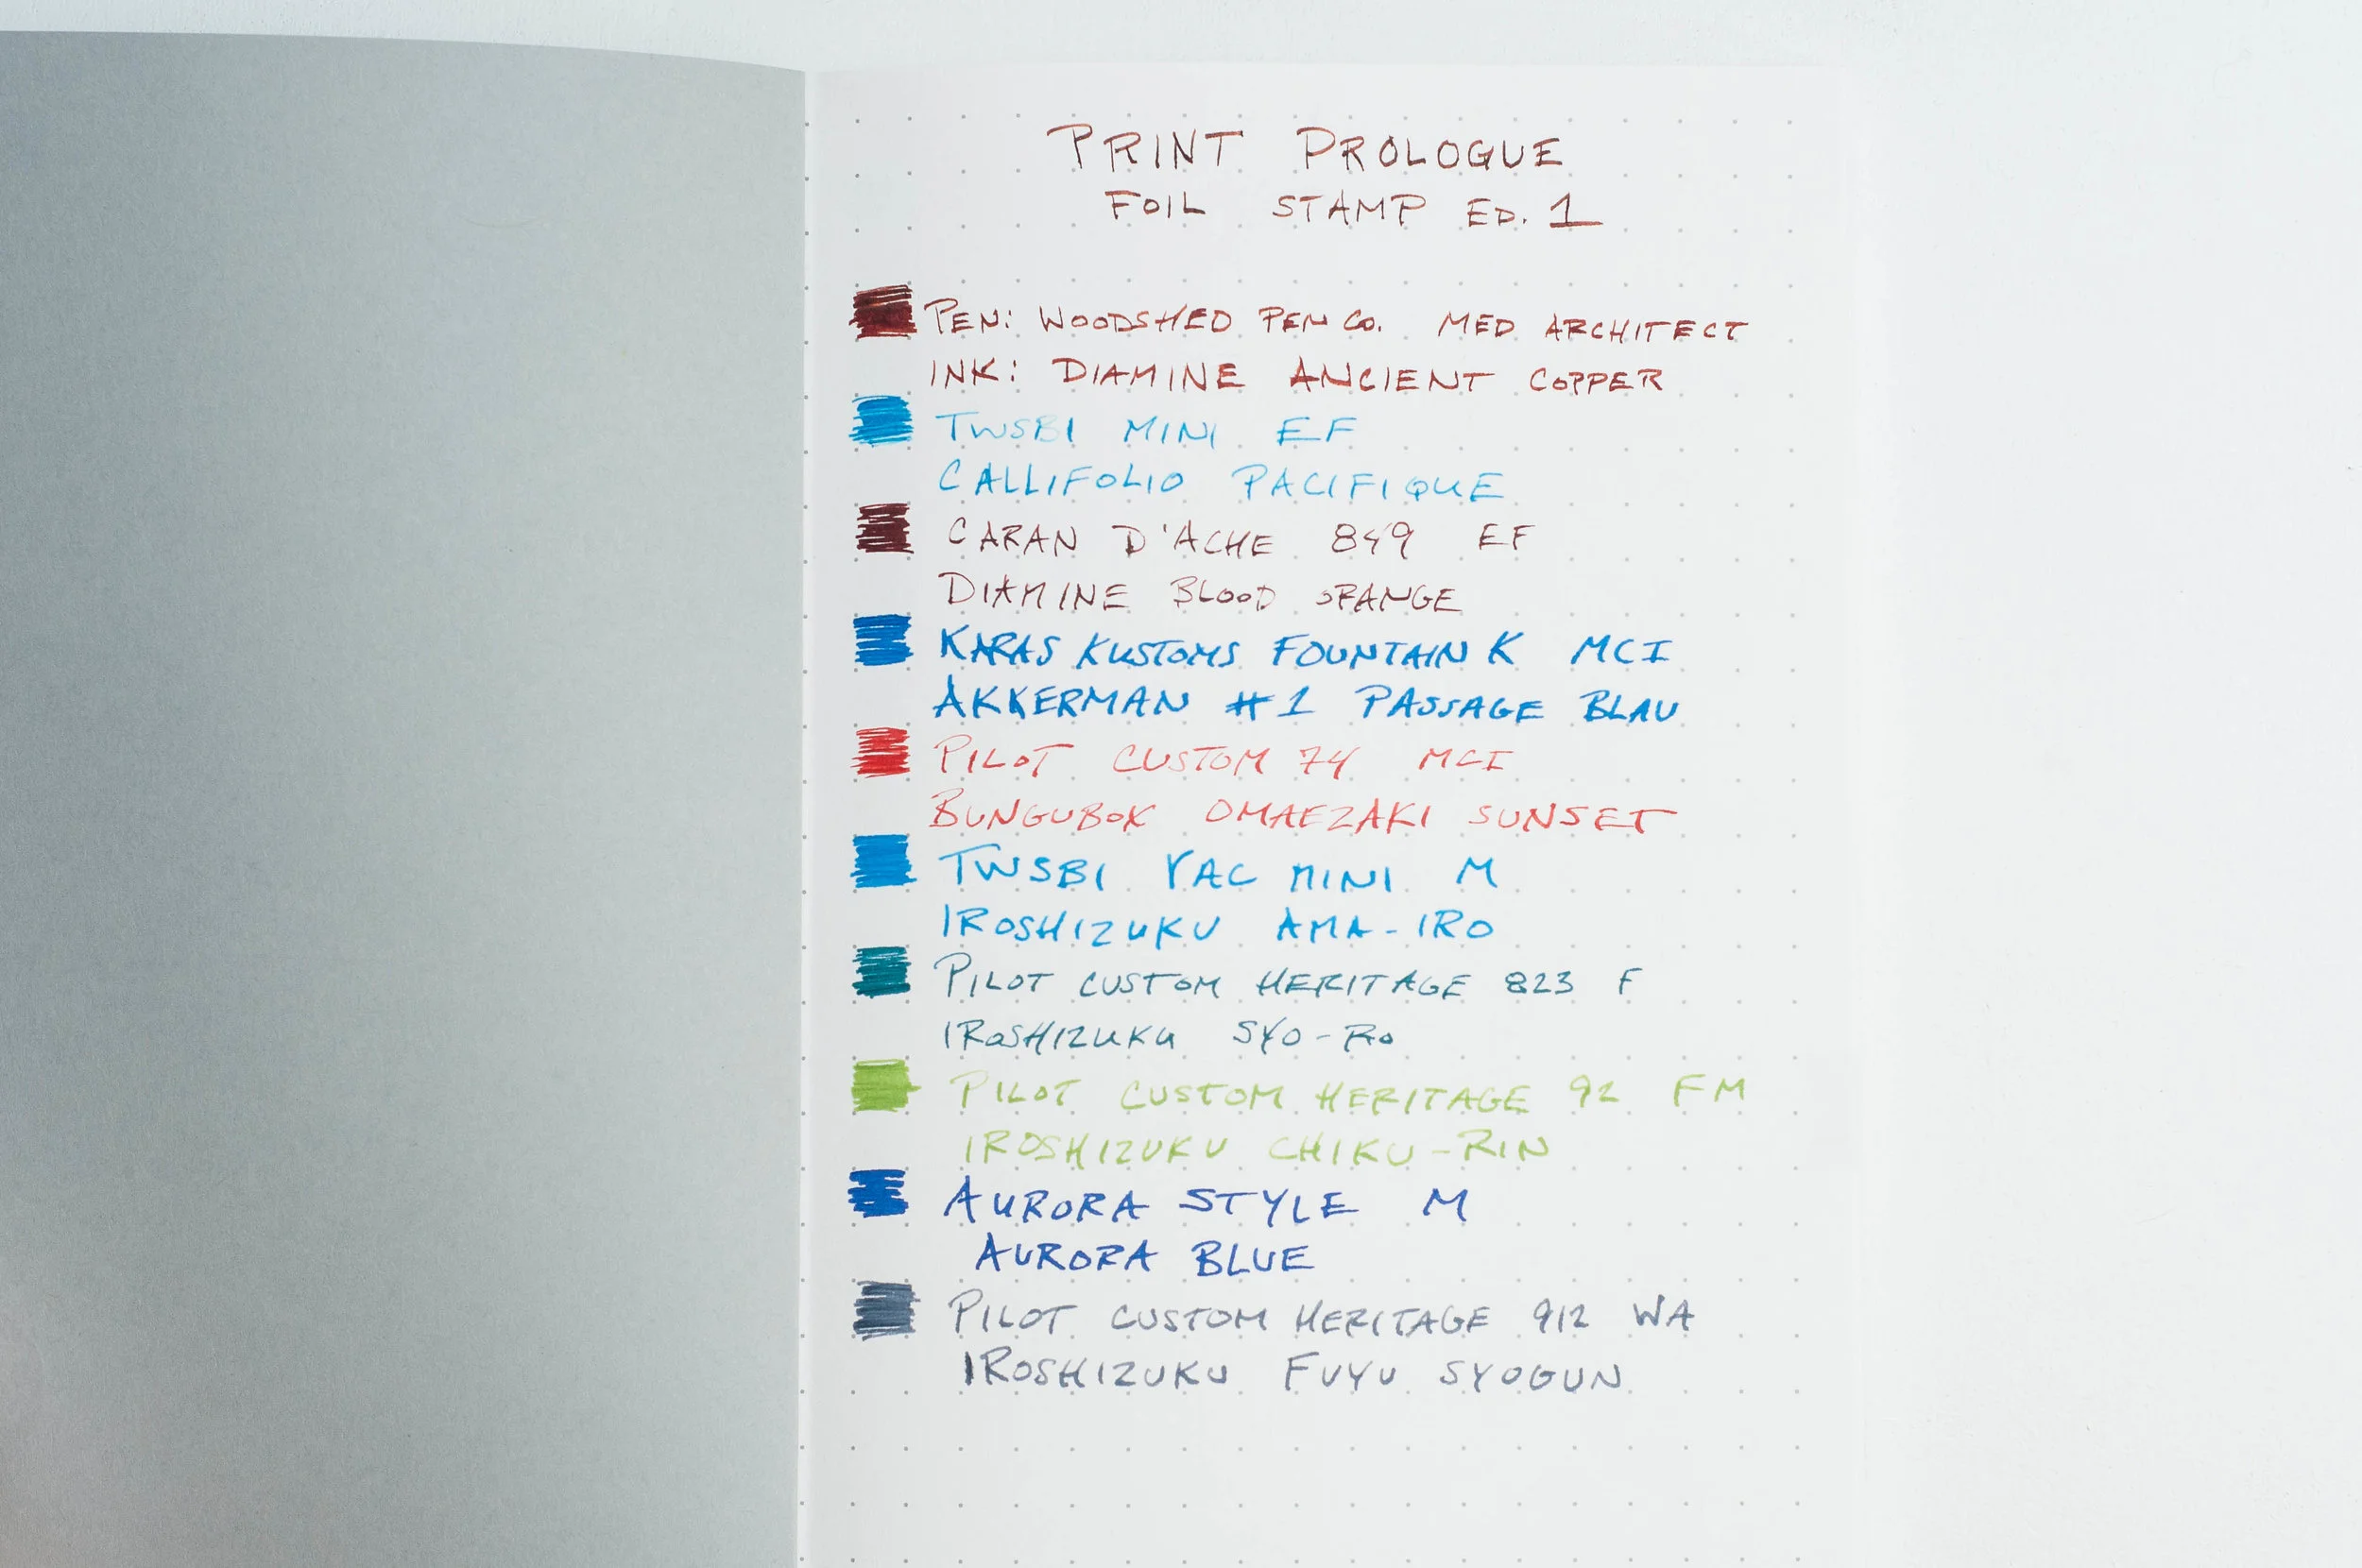 PRINT PROLOGUE
FOIL STAMP ED. 1
PEN: WOODSHED PEN CO. MED ARCHITECT
INK: DIAMINE ANCIENT COPPER
TWSBI MINI EF
CALLIFOLIO PACIFIQUE
CARAN D'ACHE 849 EF
DIAMINE BLOOD ORANGE
KARAS KUSTOMS FOUNTAIN K MCI
AKKERMAN #1 PASSAGE BLAU
PILOT CUSTOM 74 MCI
BUNGUBOX OMAEZAKI SUNSET
TWSBI VAC MINI M
IROSHIZUKU AMA-IRO
PILOT CUSTOM HERITAGE 823 F
IROSHIZUKU SYO-RO
PILOT CUSTOM HERITAGE 92 FM
IROSHIZUKU CHIKU-RIN
AURORA STYLE M
AURORA BLUE
PILOT CUSTOM HERITAGE 912 WA
IROSHIZUKU FUYU SYOGUN